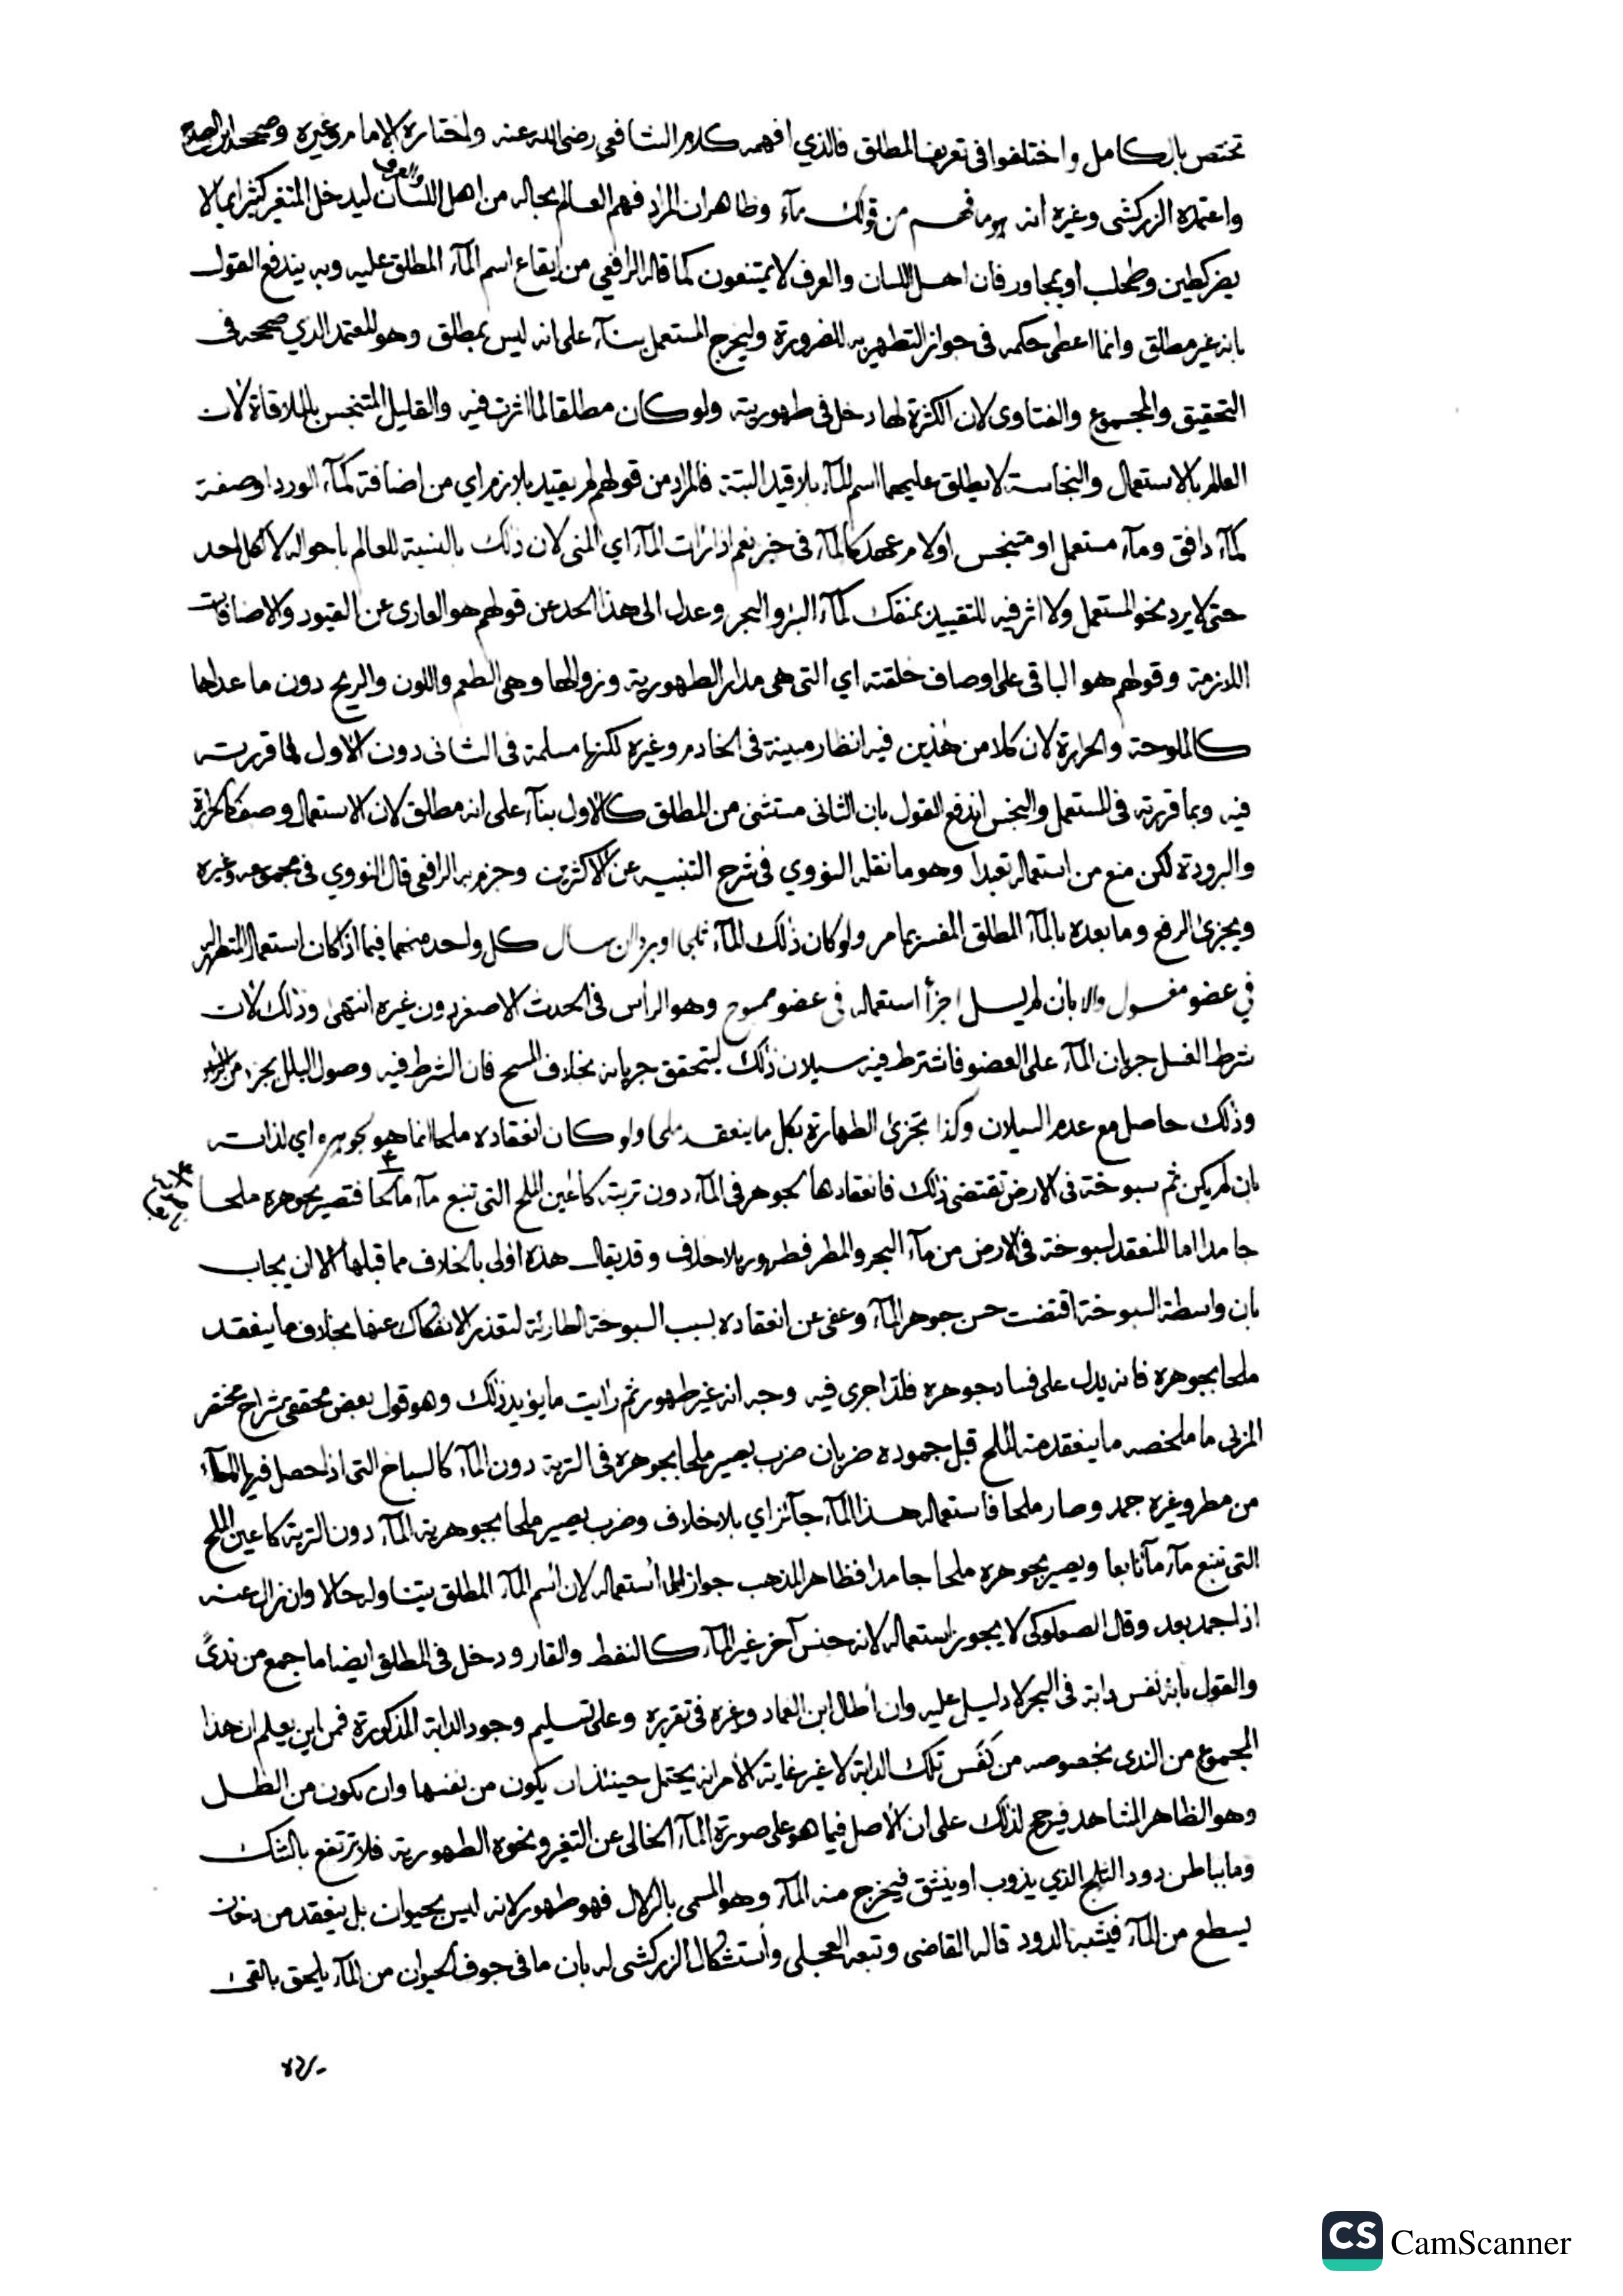 تختص بالكامل واختلفوا في تعريف المطلق فالذي افهمه كلام الشافعي رضي الله عنه واختاره الامام وغيره وصححه ابن الصلاح
واعتمده الزركشي وغيره انه هو ما فهم من قولك مآء وظاهر ان المراد فهم العالم بحاله من اهل اللسان والعرف ليدخل المتغير كثيرا بما لا
يضر كطين وطحلب او بمجاور فان اهل اللسان والعرف لا يمتنعون كما قاله الرافعي من ايقاع اسم المآء المطلق عليه وبه يندفع القول
بانه غير مطلق وانما اعطي حكمه في جواز التطهير به للضرورة وليخرج المستعمل بنآء على انه ليس بمطلق وهو المعتمد الذي صححه في
التحقيق والمجموع والفتاوى لان الكثرة لها دخل في طهوريته ولو كان مطلقا لما اثرت فيه والقليل المتنجس بالملاقاة لان
العالم بالاستعمال والنجاسة لا يطلق عليهما اسم المآء بلا قيد البتة فالمراد من قولهم لم يقيد بلازم اي من اضافة كمآء الورد او صفة
كمآء دافق ومآء مستعمل او متنجس او لام عهد كالمآء في خبر نعم اذا رات المآء اي المني لان ذلك بالنسبة للعالم باحواله لا لكل احد
حتى لا يرد نحو المستعمل ولا اثر فيه للتقييد بمنفك كمآء البئر والبحر وعدل الى هذا الحد عن قولهم هو العاري عن القيود والاضافات
اللازمة وقولهم هو الباقي على اوصاف خلقته اي التي هي مدار الطهورية وزوالها وهي الطعم واللون والريح دون ما عداها
كالملوحة والحرارة لان كلا من هذين فيه انظار مبينة في الخادم وغيره لكنها مسلمة في الثاني دون الاول لما قررته
فيه وبما قررته في المستعمل والنجس اندفع القول بان الثاني مستثنى من المطلق كالاول بنآء على انه مطلق لان الاستعمال وصف كالحرارة
والبرودة لكن منع من استعماله تعبدا وهو ما نقله النووي في شرح التنبيه عن الاكثرين وجزم به الرافعي قال النووي في مجموعه وغيره
ويجزئ الرفع وما بعده بالمآء المطلق المفسر بما مر ولو كان ذلك المآء ثلجا او بردا ان سال كل واحد منهما فيما اذا كان استعمال المتطهر
في عضو مغسول والا بان لم يسل اجزأ استعماله في عضو ممسوح وهو الراس في الحدث الاصغر دون غيره انتهى وذلك لان
شرط الغسل جريان المآء على العضو فاشترط فيه سيلان ذلك ليتحقق جريانه بخلاف المسح فان الشرط فيه وصول البلل بجزء من الراس
وذلك حاصل مع عدم السيلان وكذا تجزئ الطهارة بكل ما ينعقد ملحا ولو كان انعقاده ملحا انما هو لجوهره اي لذاته
بان لم يكن ثم سبوخة في الارض تقتضي ذلك فانعقادها لجوهر في المآء دون تربته كاعين الملح التي تنبع مآء مالحا فتصير بجوهره ملحا
جامدا اما المنعقد لسبوخة في الارض من مآء البحر والمطر فطهور بلا خلاف وقد يقال هذه اولى بالخلاف مما قبلها الا ان يجاب
بان واسطة السبوخة اقتضت حسن جوهر المآء وعفى عن انعقاده بسبب السبوخة الطارئة لتعذر الانفكاك عنها بخلاف ما ينعقد
ملحا بجوهره فانه يدل على فساد جوهره فلذا جرى فيه وجه انه غير طهور ثم رايت ما يؤيد ذلك وهو قول بعض محققي شراح مختصر
المزني ما ملخصه ما ينعقد منه الملح قبل جموده ضربان ضرب يصير ملحا بجوهره في التربة دون المآء كالسباخ التي اذا حصل فيها المآء
من مطر وغيره جمد وصار ملحا فاستعمال هذا المآء جآئز اي بلا خلاف وضرب يصير ملحا بجوهرية المآء دون التربة كاعين الملح
التي تنبع مآء مآئعا ويصير بجوهره ملحا جامدا فظاهر المذهب جواز استعماله لان اسم المآء المطلق يتناوله حالا وان زال عنه
اذا جمد بعد وقال الصعلوكي لا يجوز استعماله لانه جنس آخر غير المآء كالنفط والقار ودخل في المطلق ايضا ما جمع من ندى
والقول بانه نفس دابة في البحر لا دليل عليه وان اطال ابن العماد وغيره في تقريره وعلى تسليم وجود الدابة المذكورة فمن اين يعلم ان هذا
المجموع من الندى بخصوصه من نفس تلك الدابة لا غير غاية الامر انه يحتمل حينئذ ان يكون من نفسها وان يكون من الطل
وهو الظاهر المشاهد فيرجح لذلك على ان الاصل فيما هو على صورة المآء الخالي عن التغير ونحوه الطهورية فلا ترتفع بالشك
وما بباطن دود الثلج الذي يذوب او ينشق فيخرج منه المآء وهو المسمى بالزلال فهو طهور لانه ليس بحيوان بل ينعقد من دخان
يسطع من المآء فيشبه الدود قاله القاضي وتبعه العجلي واستشكال الزركشي له بان ما في جوف الحيوان من المآء يلحق بالقئ